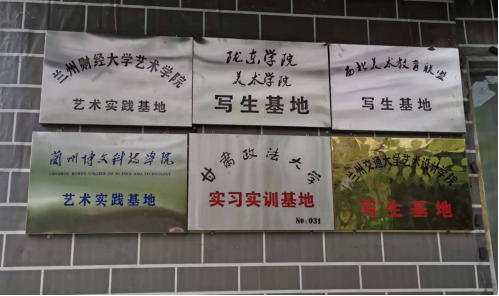 兰州财经大学艺术学院
艺术实践基地
陇东学院
美术学院
写生基地
西北美术教育联盟
写生基地
兰州博文科技学院
LANZHOU BOWEN COLLEGE OF SCIENCE AND TECHNOLOGY
艺术实践基地
甘肃政法大学
实习实训基地
No:031
兰州交通大学艺术设计学院
写生基地